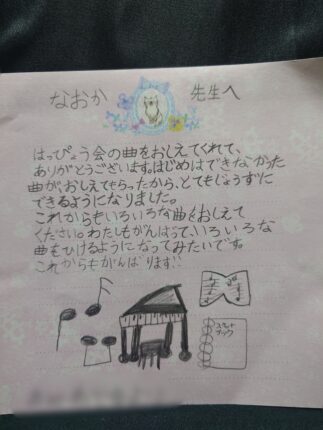 なおか 先生へ
はっぴょう会の曲をおしえてくれて、
ありがとうございます。はじめはできなかった
曲が、おしえてもらったから、とてもじょうずに
できるようになりました。
これからもいろいろな曲をおしえて
ください。わたしもがんばって、いろいろな
曲をひけるようになってみたいです。
これからもがんばります!!